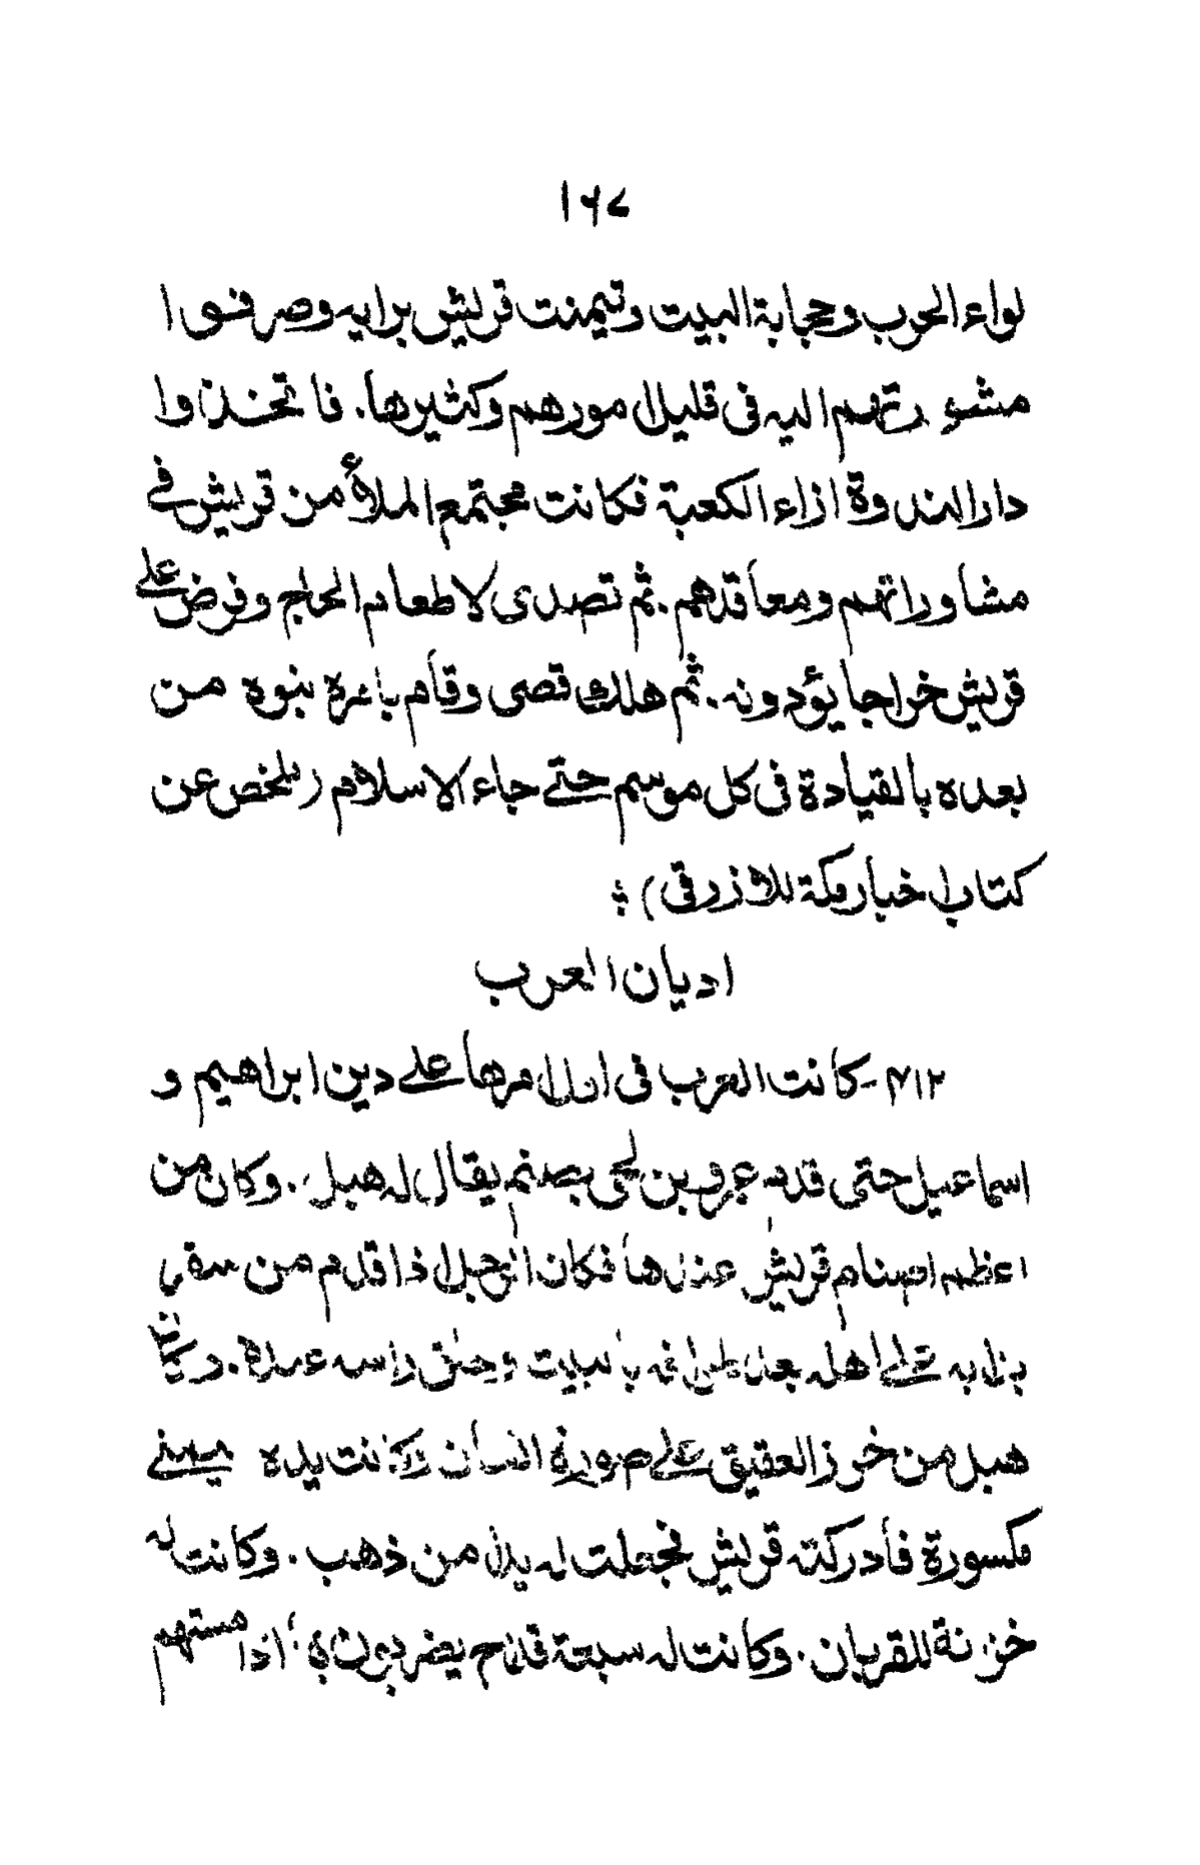 ١٦٧
لواء الحرب وحجابة البيت وتيمنت قريش برايه وصرفوا
مشورتهم اليه في قليل امورهم وكثيرها. فاتخذوا
دار الندوة ازاء الكعبة فكانت مجتمع الملأ من قريش في
مشاوراتهم ومعاقدهم. ثم تصدى لاطعام الحاج وفرض على
قريش خراجا يؤدونه. ثم هلك قصى وقام بامره بنوه من
بعده بالقيادة في كل موسم حتى جاء الاسلام (ملخص عن
كتاب اخبار مكة للازرقي)
اديان العرب
٤١٢- كانت العرب في اول امرها على دين ابراهيم و
اسماعيل حتى قدم عمرو بن لحى بصنم يقال له هبل. وكان من
اعظم اصنام قريش عندها فكان الرجل اذا قدم من سفر
بدا به على اهله بعد طوافه بالبيت وحلق راسه عنده. وكان
هبل من خرز العقيق على صورة انسان وكانت يده اليمنى
مكسورة فأدركته قريش فجعلت له يدا من ذهب. وكانت له
خزنة للقربان. وكانت له سبعة قداح يضربون بها اذا مستهم